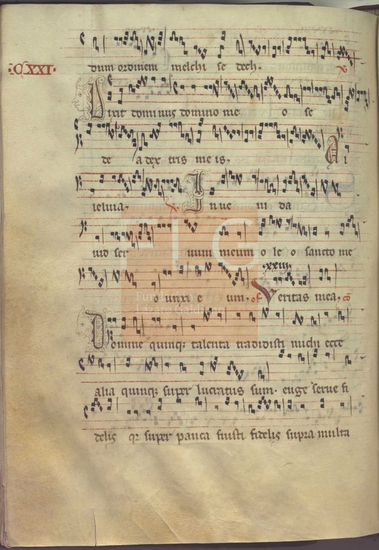 dum ordinem melchi se dech.
·CXXI·
Dixit dominus domino me o se
de a dex tris me is. Al
leluia. Inue ni da
uid ser uum meum o le o sancto me
.xxiii.
o unxi e um. of Veritas mea. co
Domine quinq; talenta tradidisti michi ecce
alia quinq; super lucratus sum. euge serue fi
delis qr super pauca fuisti fidelis supra multa